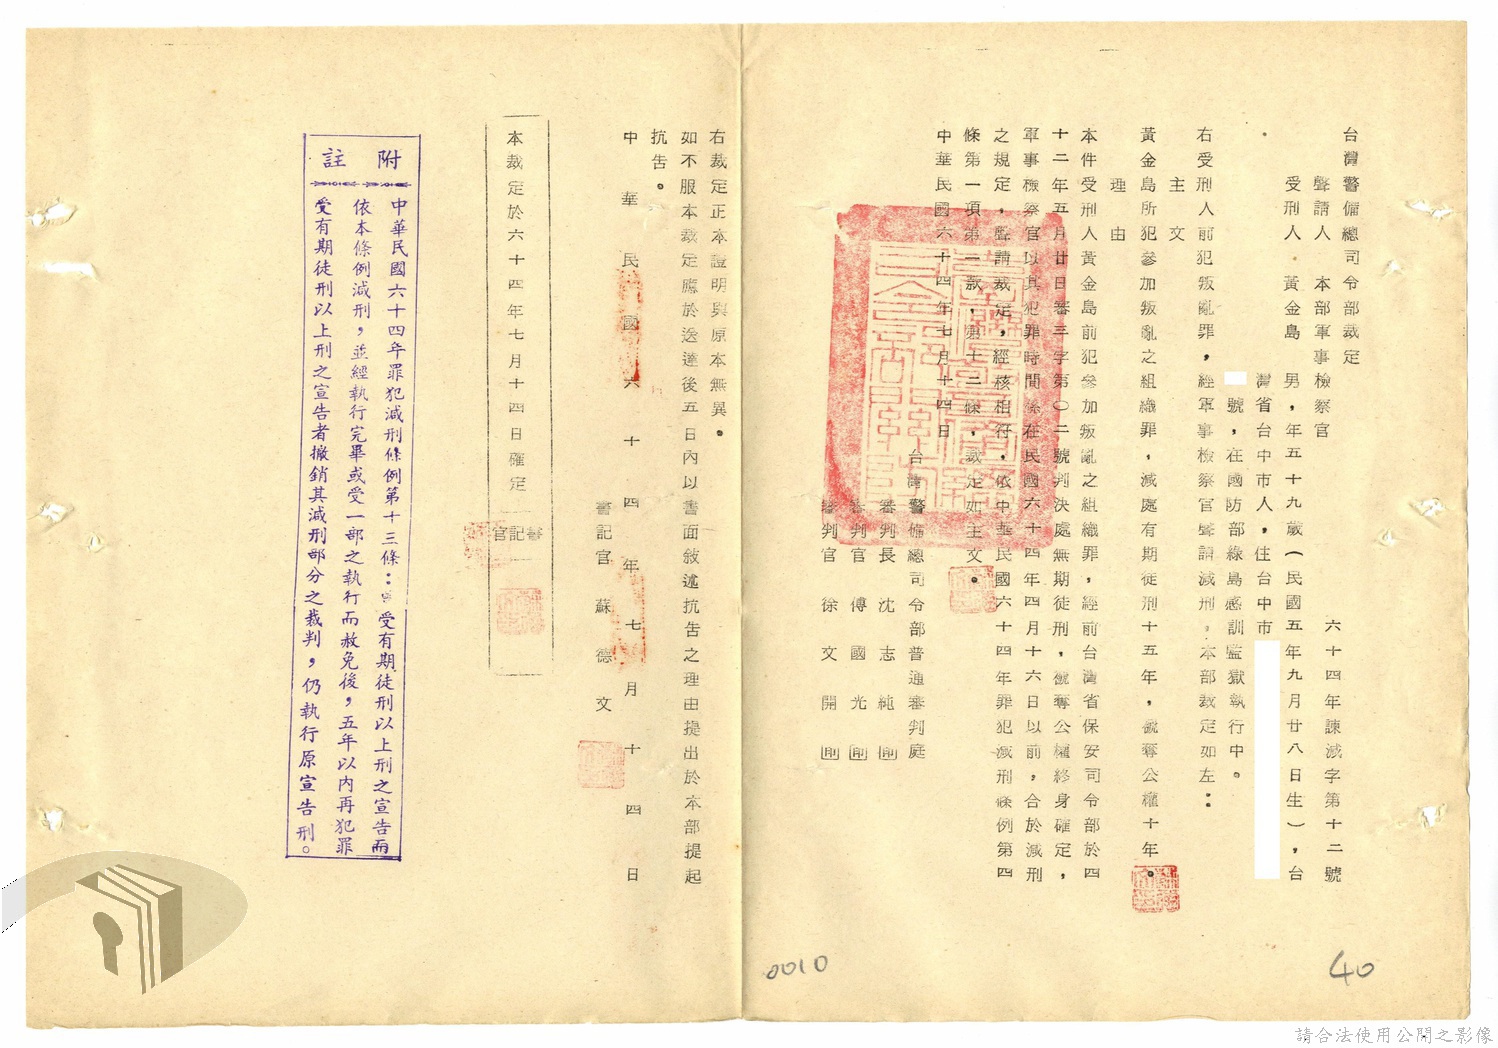 台灣警備總司令部裁定
六十四年諫減字第十二號
聲請人　本部軍事檢察官
受刑人　黃金島　男，年五十九歲（民國五年九月廿八日生），台
灣省台中市人，住台中市
號，在國防部綠島感訓監獄執行中。
右受刑人前犯叛亂罪，經軍事檢察官聲請減刑，本部裁定如左：
主文
黃金島所犯參加叛亂之組織罪，減處有期徒刑十五年，褫奪公權十年。
理由
本件受刑人黃金島前犯參加叛亂之組織罪，經前台灣省保安司令部於四
十二年五月廿日審三字第〇二號判決處無期徒刑，褫奪公權終身確定，
軍事檢察官以其犯罪時間係在民國六十四年四月十六日以前，合於減刑
之規定，聲請裁定，經核相符，依中華民國六十四年罪犯減刑條例第四
條第一項第二款，第十二條，裁定如主文。
中華民國六十四年七月十四日
台灣警備總司令部普通審判庭
審判長　沈志純　印
審判官　傅國光　印
審判官　徐文開　印
右裁定正本證明與原本無異。
如不服本裁定應於送達後五日內以書面敘述抗告之理由提出於本部提起
抗告。
中華民國六十四年七月十四日
書記官　蘇德文
本裁定於六十四年七月十四日確定
書記官
附註
中華民國六十四年罪犯減刑條例第十三條：受有期徒刑以上刑之宣告而
依本條例減刑，並經執行完畢或受一部之執行而赦免後，五年以內再犯罪
受有期徒刑以上刑之宣告者撤銷其減刑部分之裁判，仍執行原宣告刑。
0010
40
請合法使用公開之影像